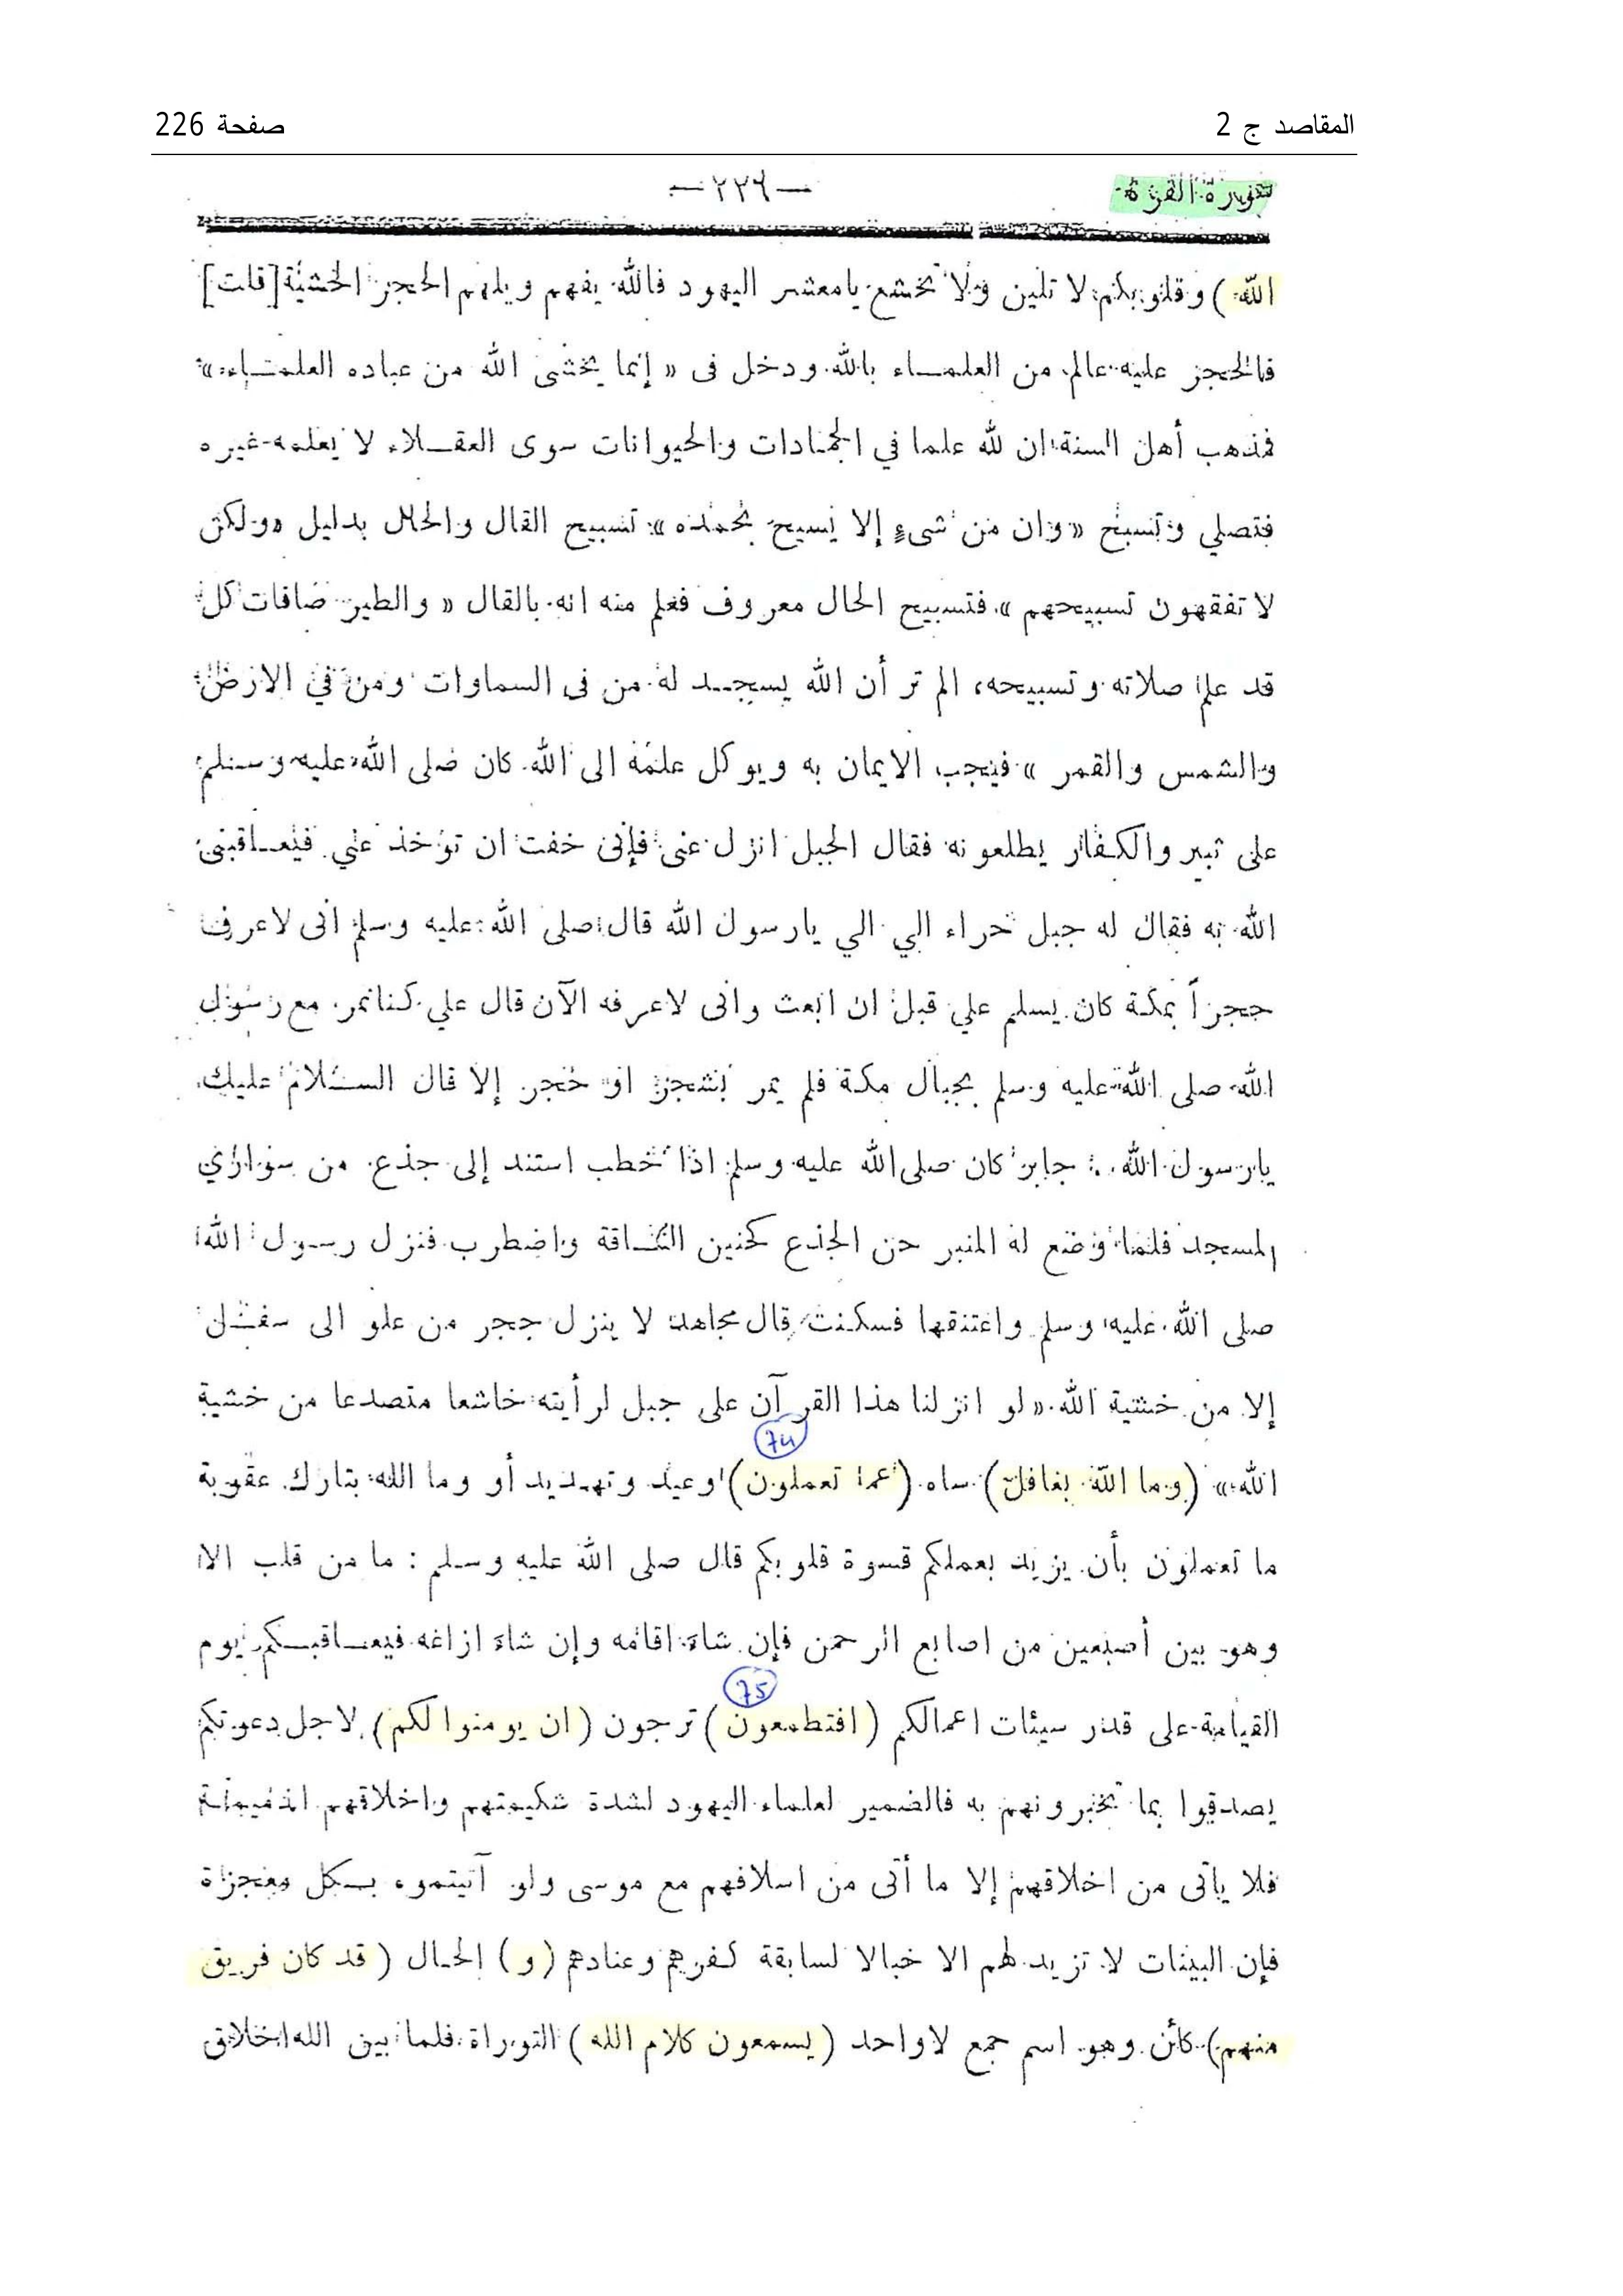 المقاصد ج 2
صفحة 226
سورة البقرة
— ٢٢٦ —
الله) وقلوبكم لا تلين ولا تخشع يامعشر اليهود فالله يفهم ويلهم الحجر الخشية [قلت]
فالحجر عليه عالم من العلمـاء بالله ودخل فى « إنما يخشى الله من عباده العلمـاء »
فمذهب أهل السنة ان لله علما في الجمادات والحيوانات سوى العقـلاء لا يعلمه غيره
فتصلي وتسبح « وان من شىءٍ إلا يسبح بحمده » تسبيح القال والحال بدليل « ولكن
لا تفقهون تسبيحهم » فتسبيح الحال معروف فعلم منه انه بالقال « والطير صافات كل
قد علم صلاته وتسبيحه، الم تر أن الله يسجـد له من فى السماوات ومن في الارض
والشمس والقمر » فيجب الايمان به ويوكل علمه الى الله كان صلى الله عليه وسـلم
على ثبير والكفار يطلعونه فقال الجبل انزل عنى فإنى خفت ان تؤخذ عني فيعـاقبنى
الله به فقال له جبل حراء الي الي يارسول الله قال صلى الله عليه وسلم انى لاعرف
حجراً بمكة كان يسلم علي قبل ان ابعث وانى لاعرفه الآن قال علي كنا نمر مع رسول
الله صلى الله عليه وسلم بجبال مكة فلم يمر بشجر او حجر إلا قال السـلام عليك
يارسول الله : جابر كان صلى الله عليه وسلم اذا خطب استند إلى جذع من سواري
المسجد فلما وضع له المنبر حن الجذع كحنين النـاقة واضطرب فنزل رسول الله
صلى الله عليه وسلم واعتنقها فسكنت قال مجاهد لا ينزل حجر من علو الى سفـل
إلا من خشية الله « لو انزلنا هذا القرآن على جبل لرأيته خاشعا متصدعا من خشية
74
الله » (وما الله بغافل) ساه (عما تعملون) وعيد وتهديد أو وما الله بتارك عقوبة
ما تعملون بأن يزيد بعملكم قسوة قلوبكم قال صلى الله عليه وسلم : ما من قلب الا
وهو بين أصبعين من اصابع الرحمن فإن شاء اقامه وإن شاء ازاغه فيعـاقبـكم يوم
75
القيامة على قدر سيئات اعمالكم (افتطمعون) ترجون (ان يومنوا لكم) لاجل دعوتكم
يصدقوا بما تخبرونهم به فالضمير لعلماء اليهود لشدة شكيمتهم واخلاقهم الذميمة
فلا يأتى من اخلاقهم إلا ما أتى من اسلافهم مع موسى ولو آتيتموه بـكل معجزاة
فإن البينات لا تزيد لهم الا خبالا لسابقة كفرهم وعنادهم (و) الحـال (قد كان فريق
منهم) كأن وهو اسم جمع لاواحد (يسمعون كلام الله) التوراة فلما بين الله اخلاق